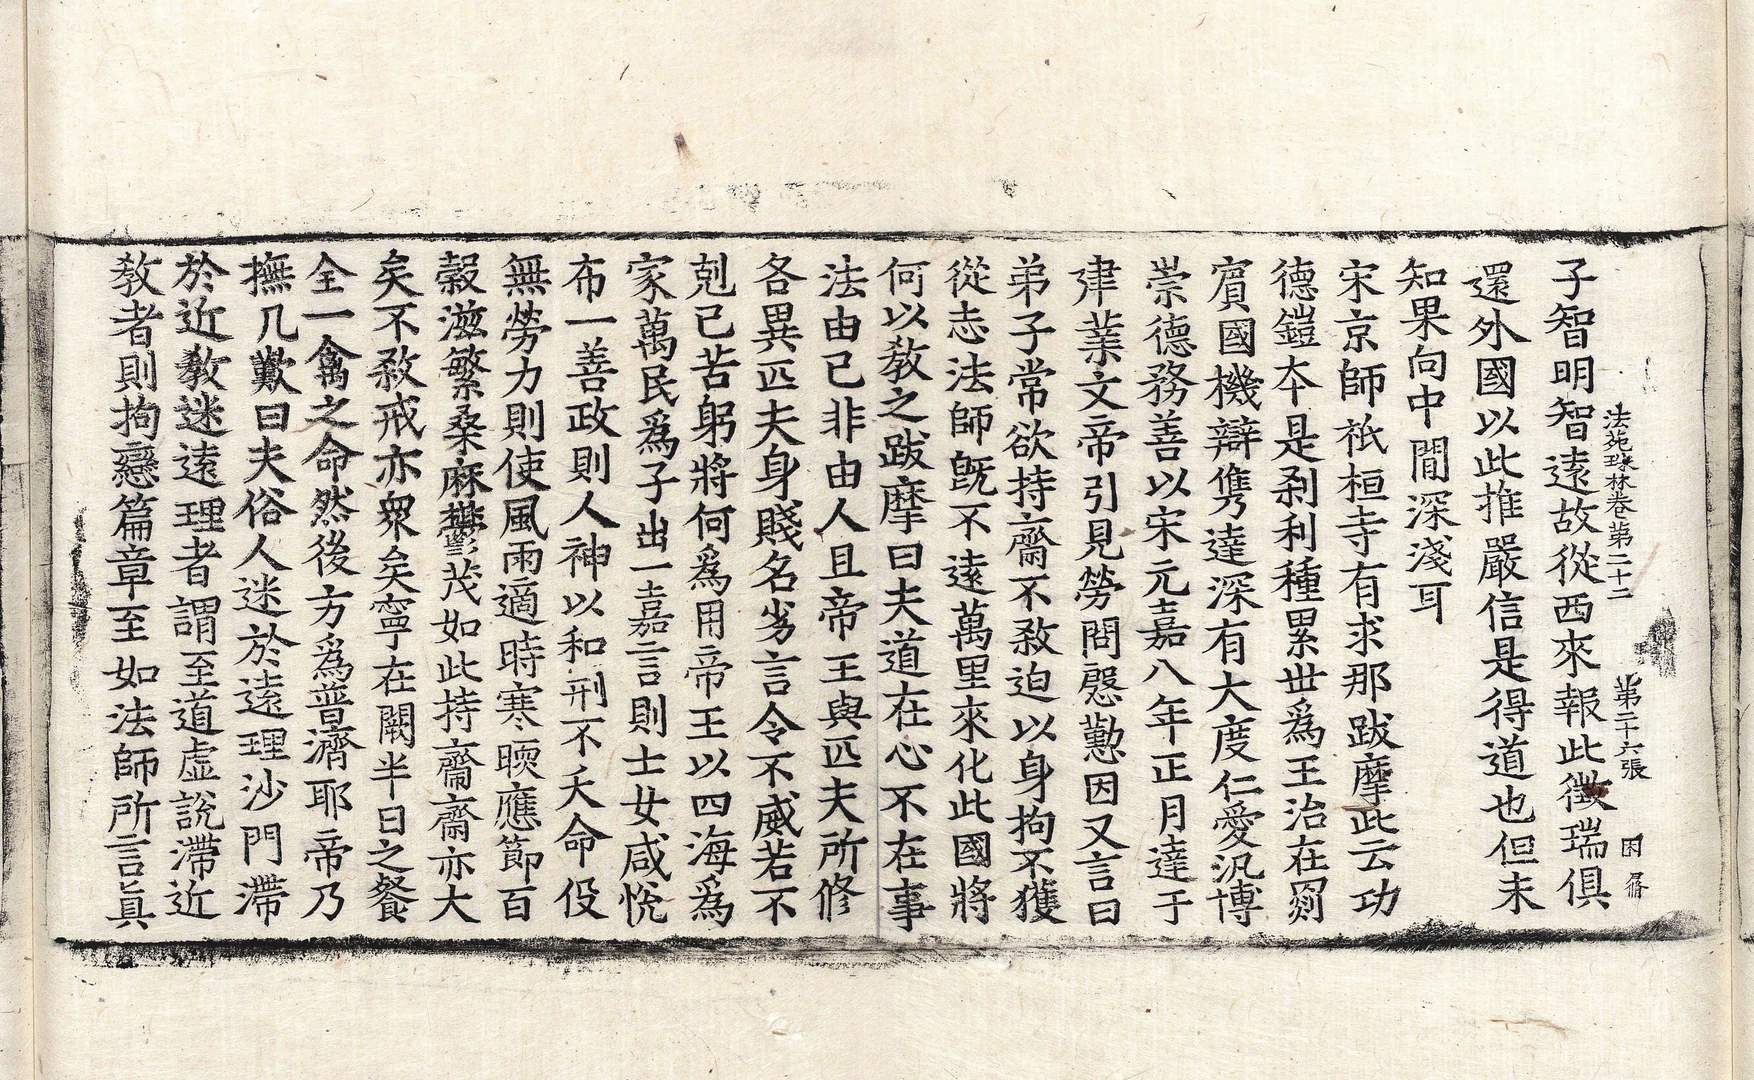 法苑珠林卷第二十二 第二十六張 困
子智明智遠故從西來報此徵瑞俱
還外國以此推嚴信是得道也但未
知果向中閒深淺耳
宋京師祇桓寺有求那跋摩此云功
德鎧本是刹利種累世爲王治在罽
賓國機辯儁達深有大度仁愛汎博
崇德務善以宋元嘉八年正月達于
建業文帝引見勞問慇懃因又言曰
弟子常欲持齋不敎迫以身拘不獲
從志法師旣不遠萬里來化此國將
何以敎之跋摩曰夫道在心不在事
法由已非由人且帝王與匹夫所修
各異匹夫身賤名劣言令不威若不
剋己苦躬將何爲用帝王以四海爲
家萬民爲子出一嘉言則士女咸悅
布一善政則人神以和刑不夭命役
無勞力則使風雨適時寒暎應節百
穀滋繁桑麻欝茂如此持齋齋亦大
矣不敎戒亦衆矣寧在闕半日之餐
全一禽之命然後方爲普濟耶帝乃
撫几歎曰夫俗人迷於遠理沙門滯
於近敎迷遠理者謂至道虛說滯近
敎者則拘戀篇章至如法師所言眞